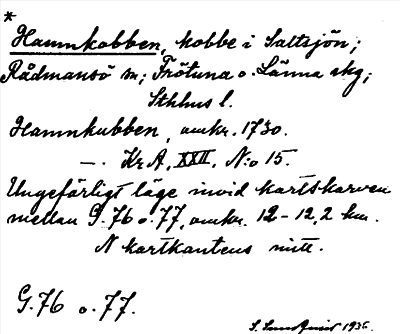 *
Hamnkobben, kobbe i Saltsjön;
Rådmansö sn; Frötuna o. Länna skg;
Sthlms l.
Hamnkubben, omkr. 1730.
—. Kr.A, XXII, N:o 15.
Ungefärligt läge invid kartskarven
mellan G. 76 o. 77, omkr. 12-12,2 km.
N kartkantens mitt.
G. 76 o. 77.
S. Lundqvist 1936.